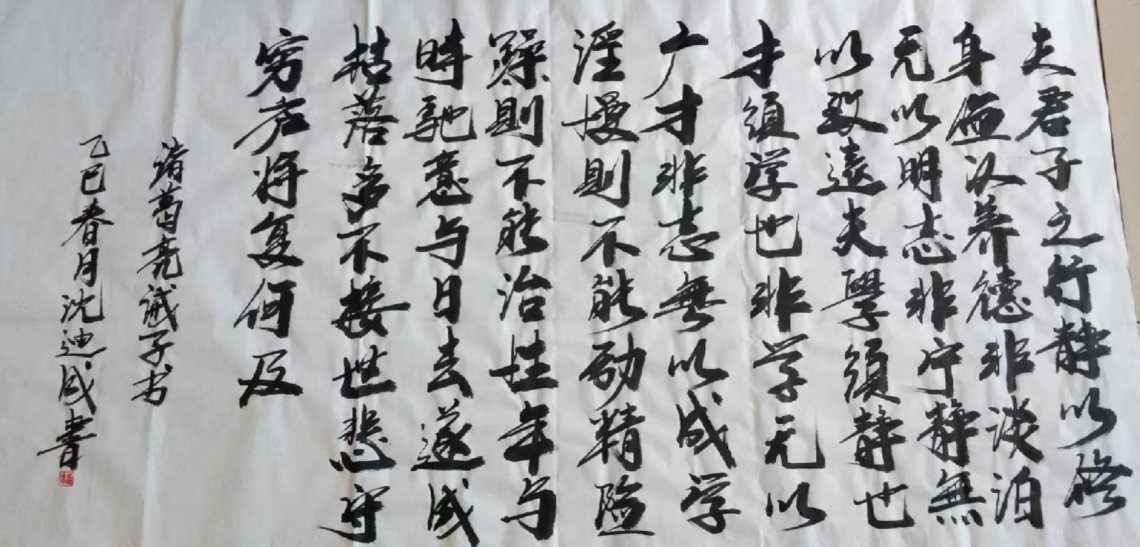 夫君子之行静以修
身俭以养德非淡泊
无以明志非宁静無
以致遠夫學須静也
才須学也非学无以
广才非志無以成学
淫慢則不能励精险
躁則不能治性年与
時馳意与日去遂成
枯落多不接世悲守
穷庐将复何及
诸葛亮诫子书
乙巳春月沈迪成書